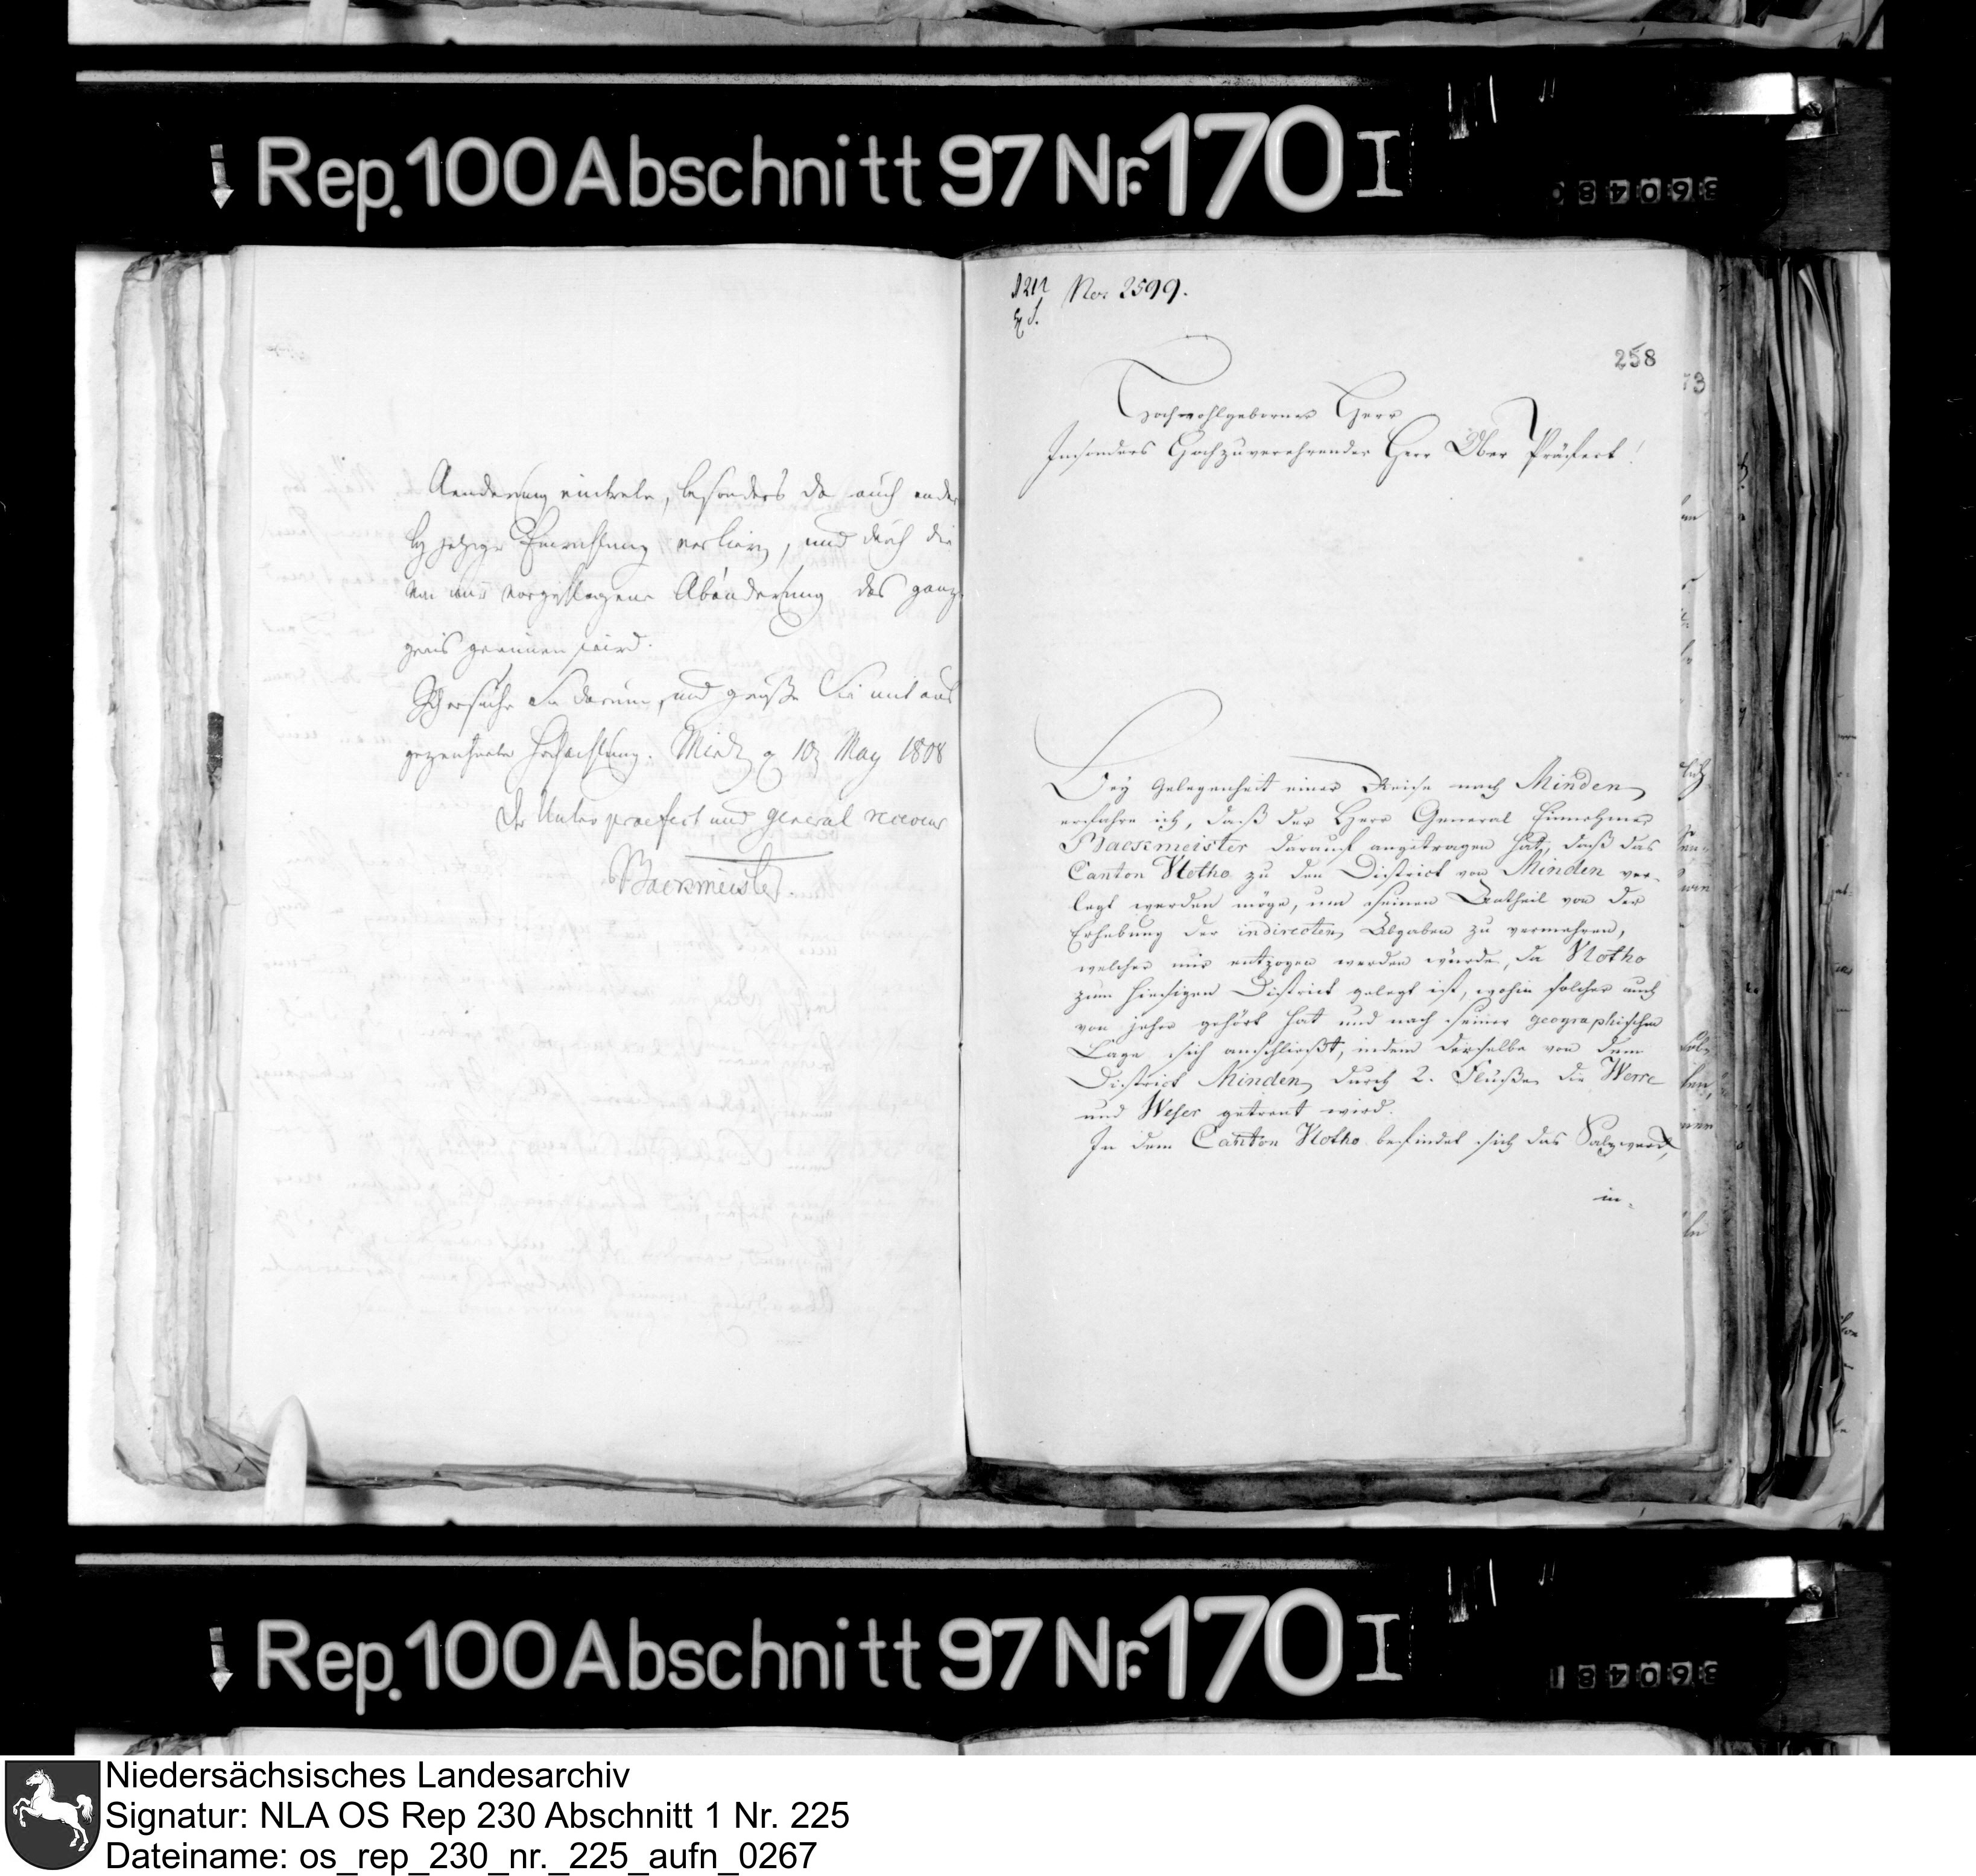 Rep. 100 Abschnitt 97 Nr. 170 I
360480
Aenderung eintrete, besonders da auch
jetzige Einrichtung verliert, und durch die
von mir vorgeschlagene Abänderung das
gewinnen wird.
Ich ersuche Sie darum, und grüße Sie mit aus
gezeichneter Hochachtung. 10 May 1808
Der Unter praefect und general receveur
Backmeister.
1212 Nro 2599.
258
Hochwohlgeborner Herr
Insonders Hochzuverehrender Herr Ober Präfect!
Bey Gelegenheit einer Reise nach Minden
erfahre ich, daß der Herr General Einnehmer
Bacsmeister darauf angetragen hat, daß das
Canton Vlotho zu dem District von Minden ver-
legt werden möge, um seinen Antheil von der
Erhebung der indirecten Abgaben zu vermehren,
welcher mir entzogen werden würde, da Vlotho
zum hiesigen District gelegt ist, wohin solcher auch
von jeher gehört hat und nach seiner geographischen
Lage sich anschließt, indem derselbe von dem
District Minden durch 2. Flüße die Werre
und Weser getrent wird.
In dem Canton Vlotho befindet sich das Salzwerk,
in-
Rep. 100 Abschnitt 97 Nr. 170 I
360481
Niedersächsisches Landesarchiv
Signatur: NLA OS Rep 230 Abschnitt 1 Nr. 225
Dateiname: os_rep_230_nr._225_aufn_0267